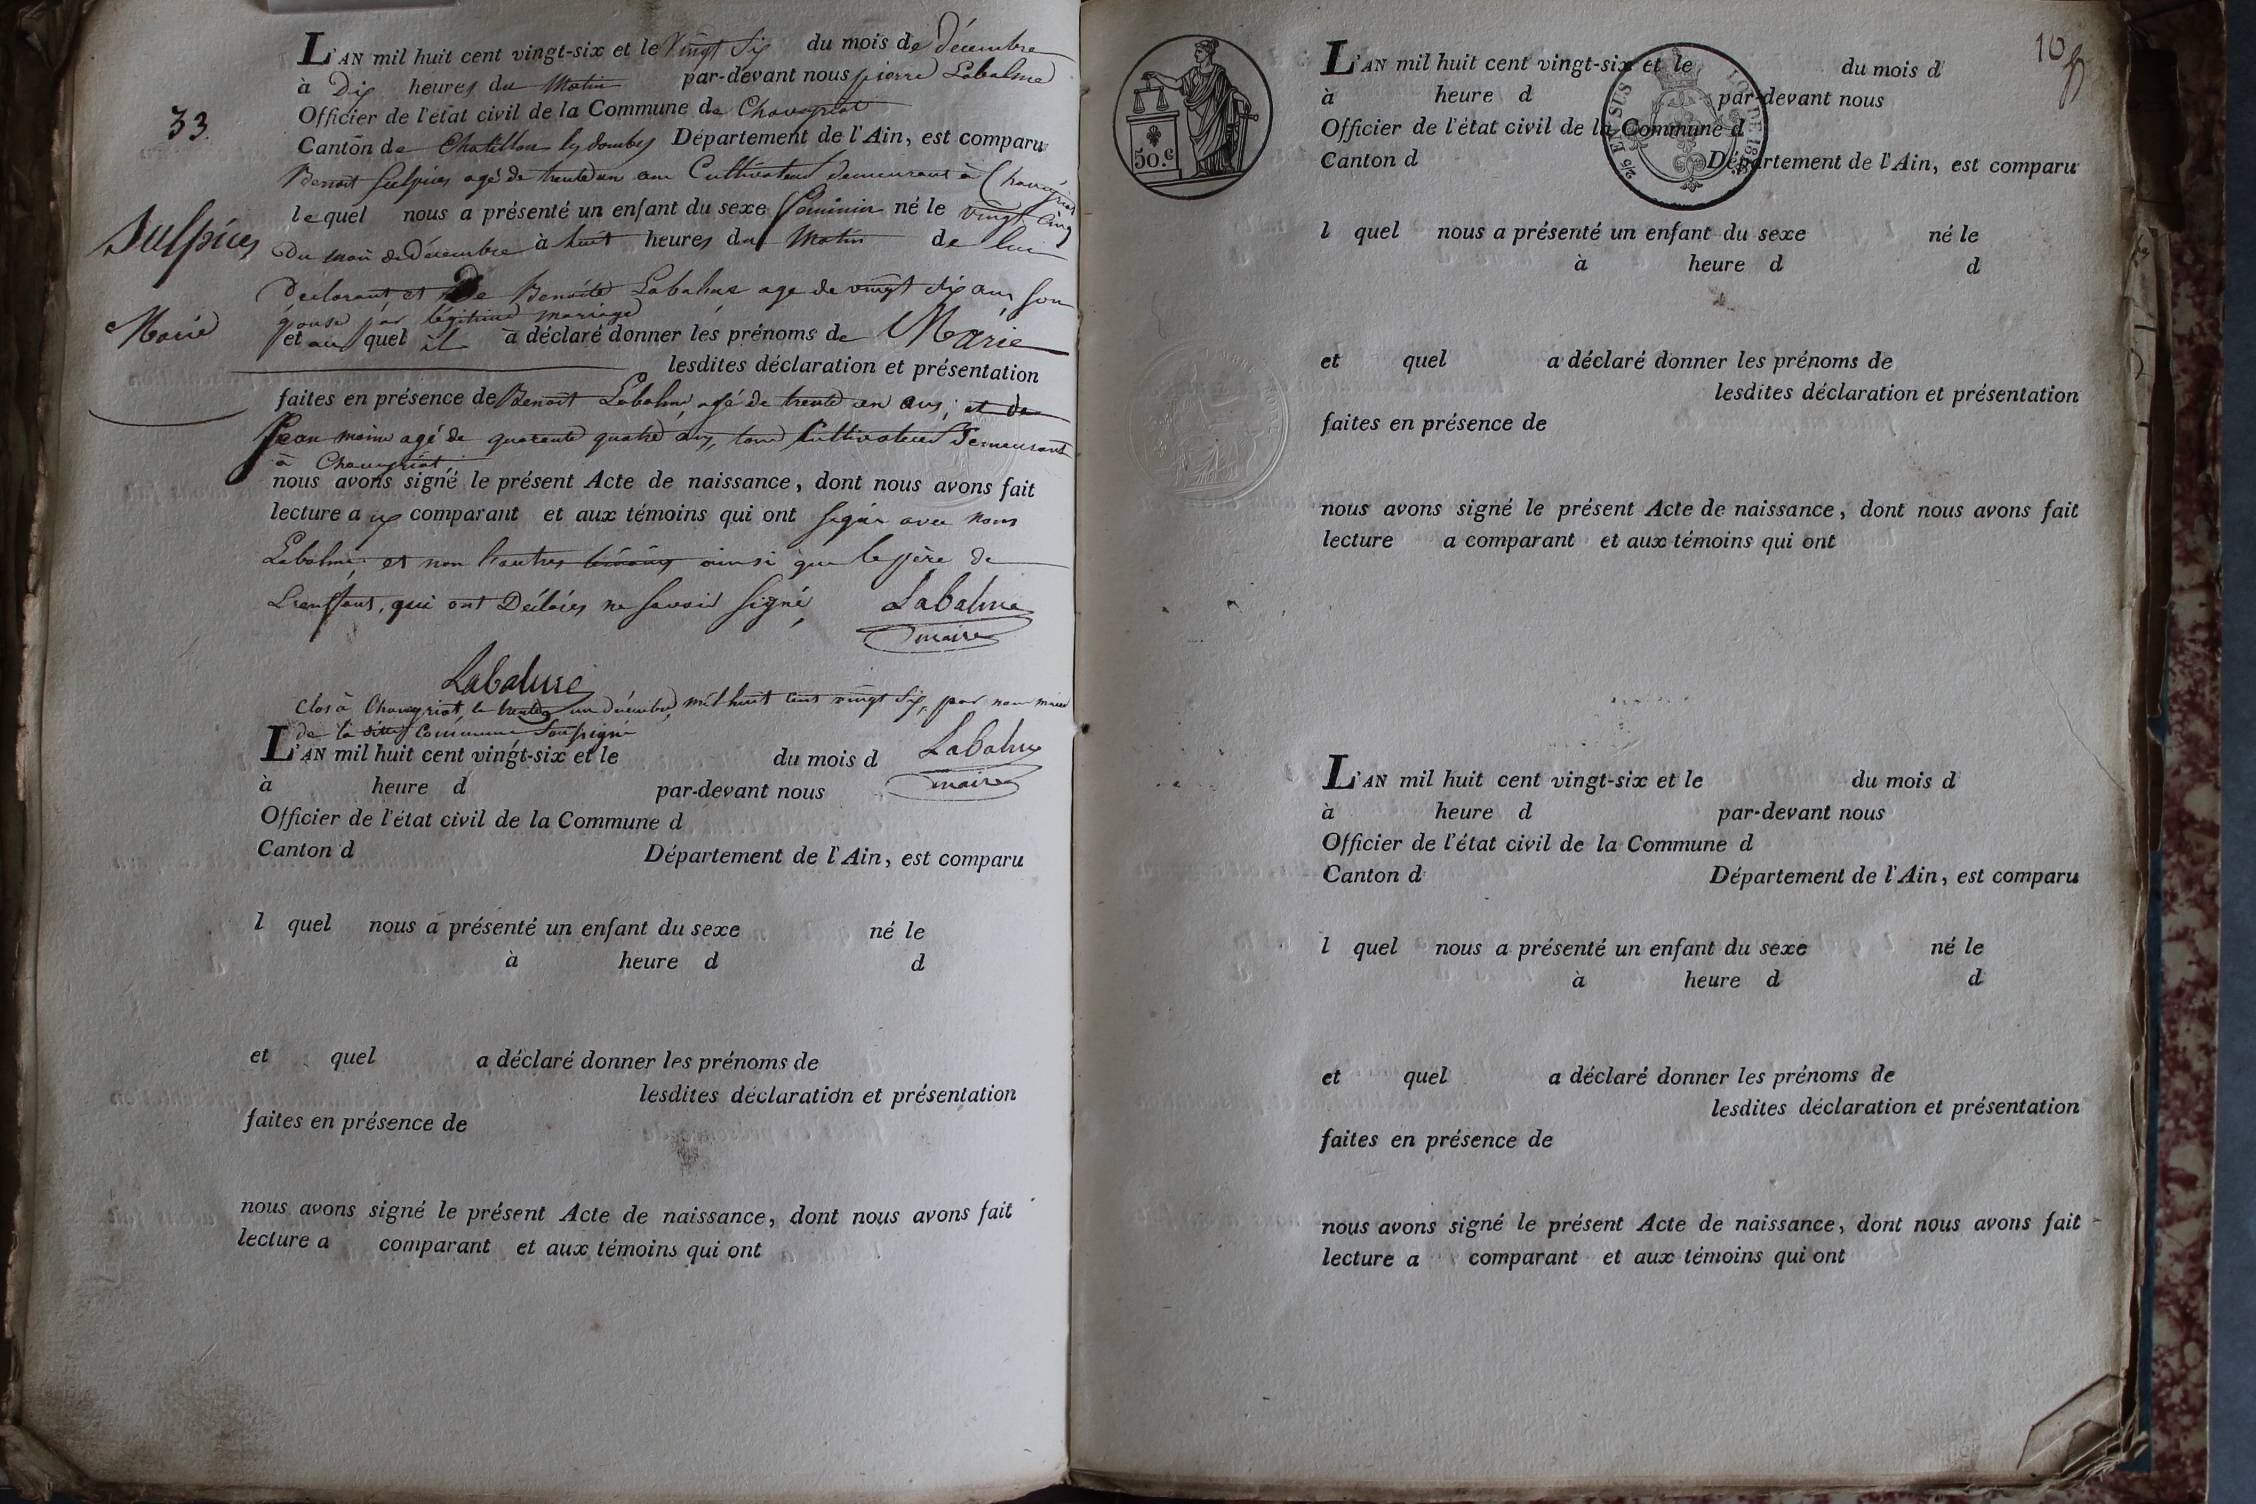 33.
Sulpices
Marie
L'AN mil huit cent vingt-six et le vingt six du mois de décembre
à Dix heures du Matin par-devant nous pierre Labalme
Officier de l'état civil de la Commune de Chaveyriat
Canton de Chatillon les dombes Département de l'Ain, est comparu
Benoit Sulpices agé de trente un ans Cultivateur demeurant à Chaveyriat
lequel nous a présenté un enfant du sexe féminin né le vingt cinq
du mois de Décembre à huit heures du Matin de lui
Déclarant et De Benoite Labalme age de vingt six ans, son
épouse par légitime mariage
et au quel il a déclaré donner les prénoms de Marie
lesdites déclaration et présentation
faites en présence de Benoit Labalme, agé de trente un ans, et de
Jean moine agé de quarante quatre ans, tous Cultivateurs Demeurant
à Chaveyriat
nous avons signé le présent Acte de naissance, dont nous avons fait
lecture a comparant et aux témoins qui ont signé avec nous
Labalme, et non l'autres témoins ainsi que le père de
L'enfant, qui ont Déclarés ne savoir signé,
Labalme
maire
Labalme
Clos à Chaveyriat, le trente un décembre, mil huit cent vingt six, par nous maire
de la ditte Commune Soussigné
Labalme
maire
L'AN mil huit cent vingt-six et le du mois d
à heure d par-devant nous
Officier de l'état civil de la Commune d
Canton d Département de l'Ain, est comparu
l quel nous a présenté un enfant du sexe né le
à heure d d
et quel a déclaré donner les prénoms de
lesdites déclaration et présentation
faites en présence de
nous avons signé le présent Acte de naissance, dont nous avons fait
lecture a comparant et aux témoins qui ont
10
50.c
2/5 EN SUS
L'AN mil huit cent vingt-six et le du mois d
à heure d par-devant nous
Officier de l'état civil de la Commune d
Canton d Département de l'Ain, est comparu
l quel nous a présenté un enfant du sexe né le
à heure d d
et quel a déclaré donner les prénoms de
lesdites déclaration et présentation
faites en présence de
nous avons signé le présent Acte de naissance, dont nous avons fait
lecture a comparant et aux témoins qui ont
L'AN mil huit cent vingt-six et le du mois d
à heure d par-devant nous
Officier de l'état civil de la Commune d
Canton d Département de l'Ain, est comparu
l quel nous a présenté un enfant du sexe né le
à heure d d
et quel a déclaré donner les prénoms de
lesdites déclaration et présentation
faites en présence de
nous avons signé le présent Acte de naissance, dont nous avons fait
lecture a comparant et aux témoins qui ont